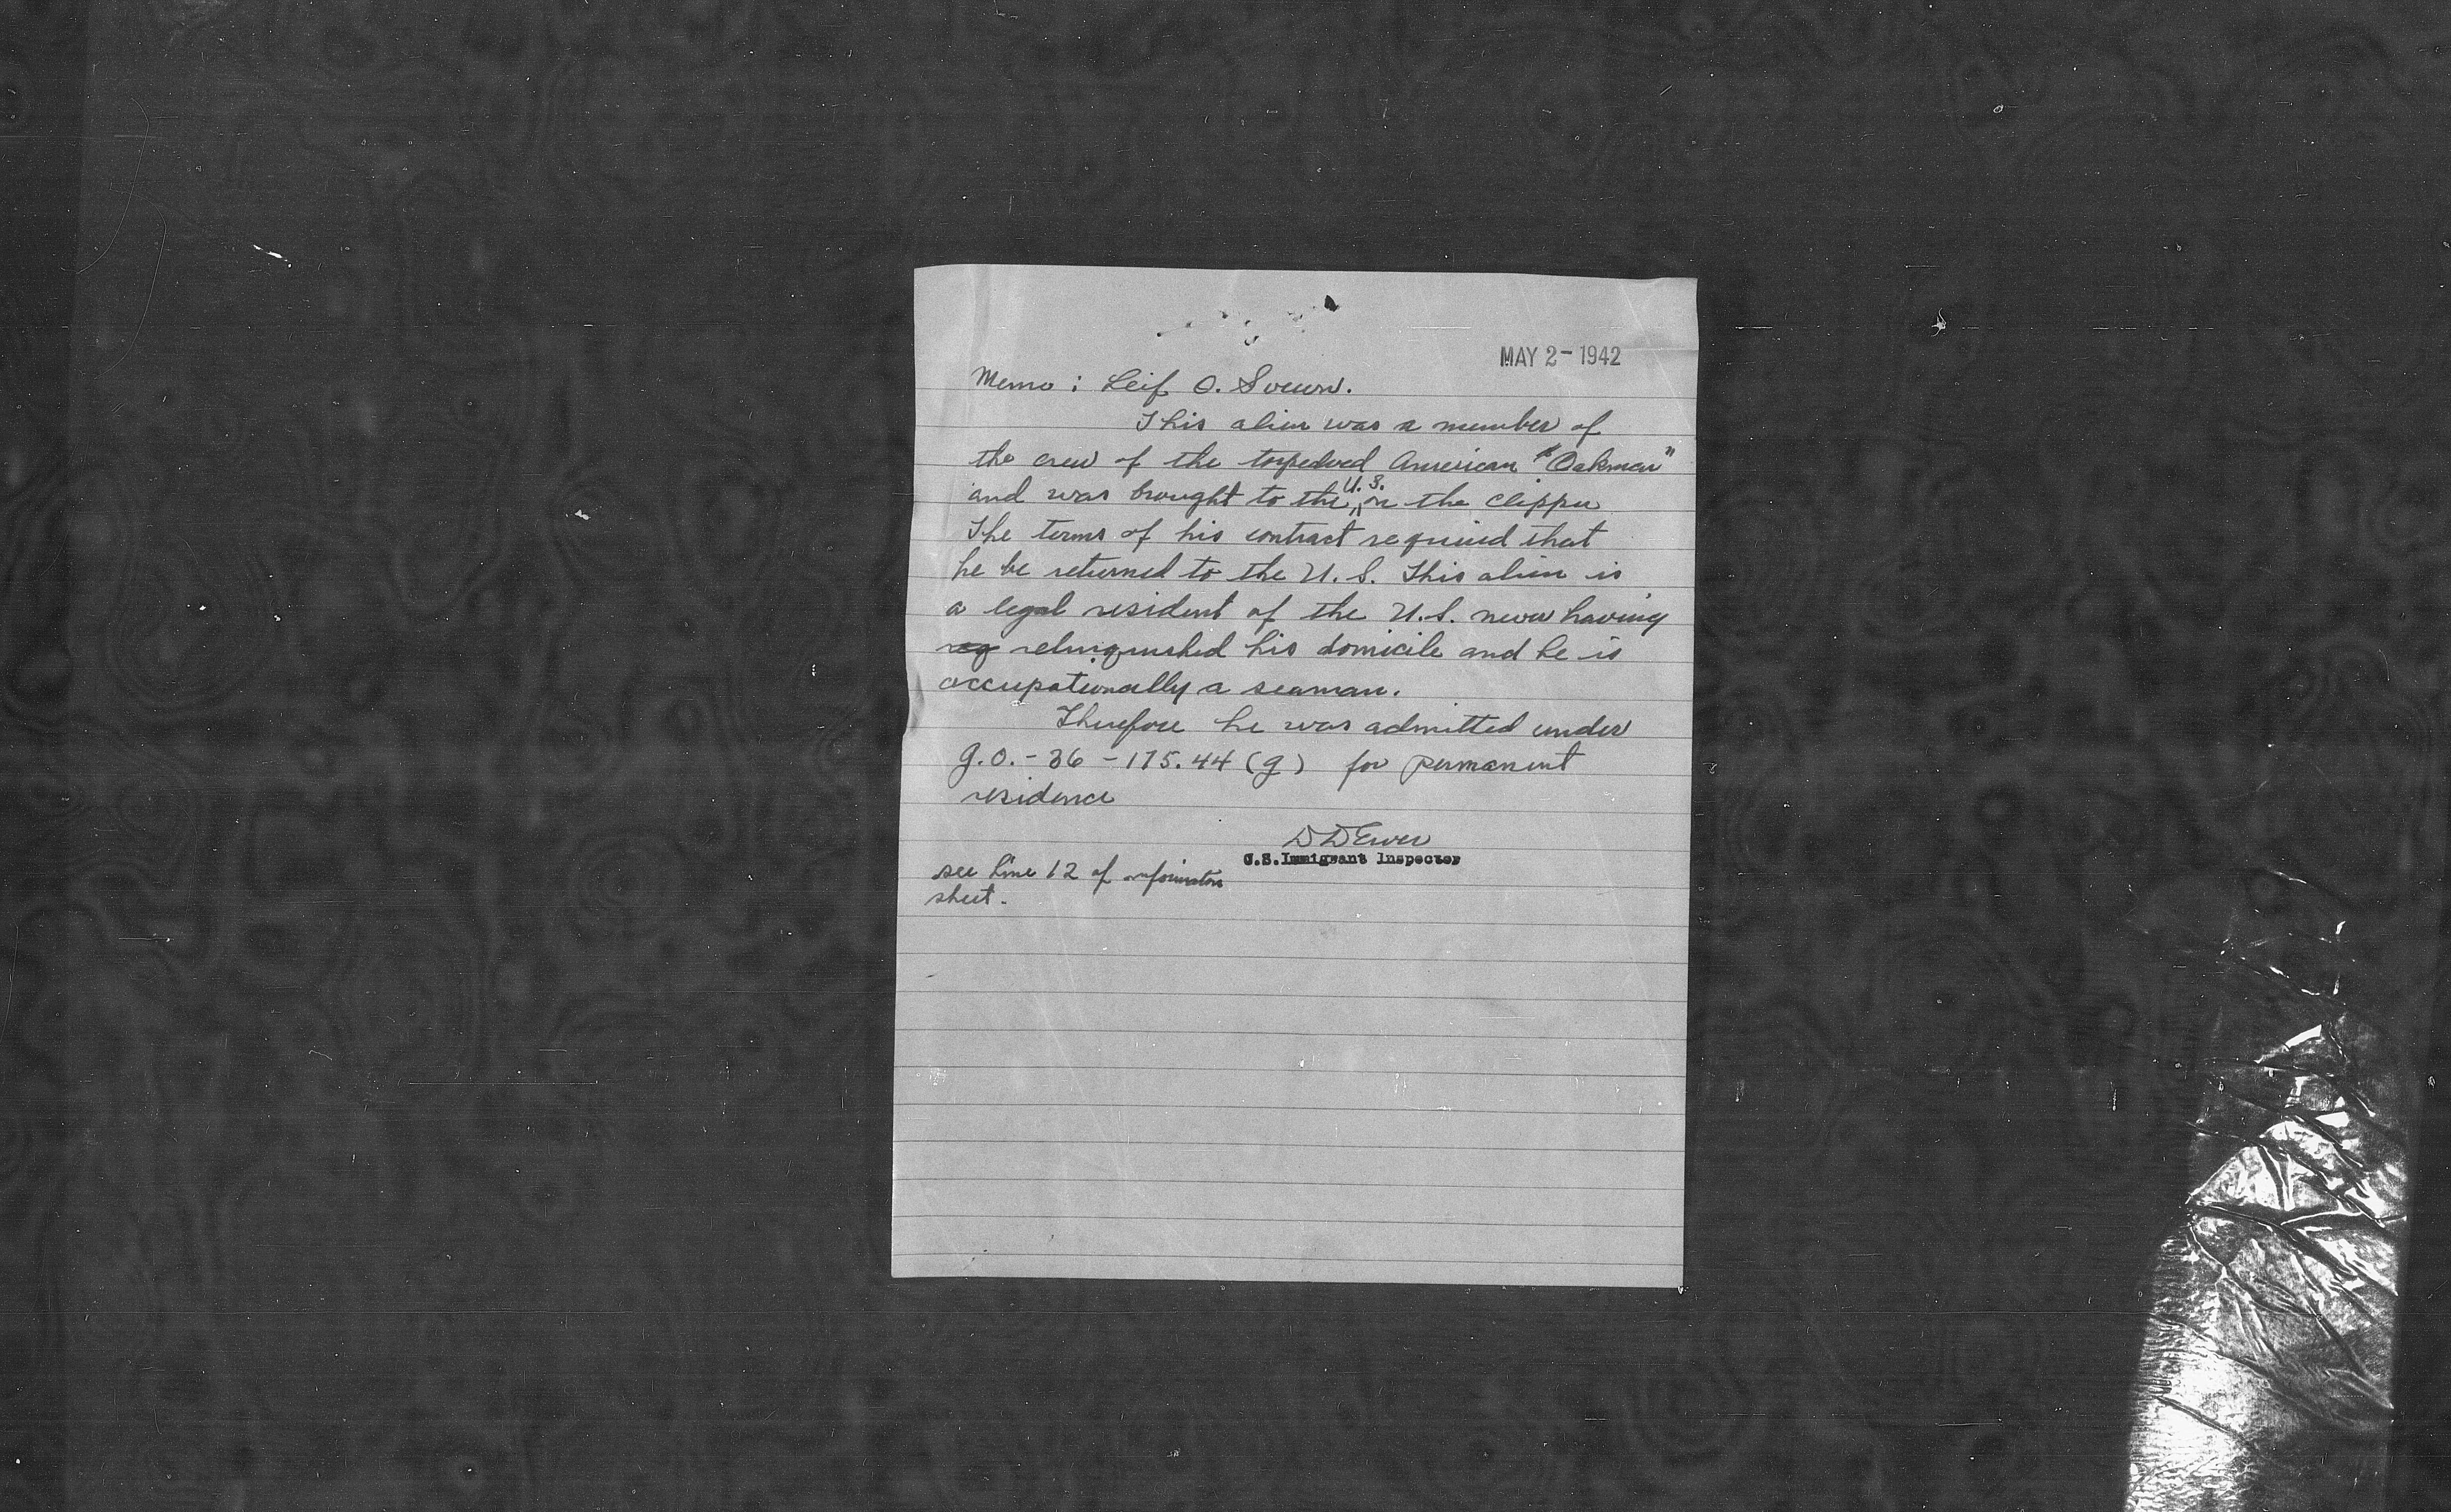 MAY 2 - 1942
Memo : Leif O.
This alien was a member of
the crew of the torpedoed American "Oakmar"
and was brought to the U.S. on the clipper
The terms of his contract required that
he be returned to the U.S. This alien is
a legal resident of the U.S. never having
req relinquished his domicile and he is
occupationally a seaman.
Therefore he was admitted under
G.O. - 36 - 175.44 (g) for permanent
residence
U.S. Immigrant Inspector
see line 12 of information
sheet.